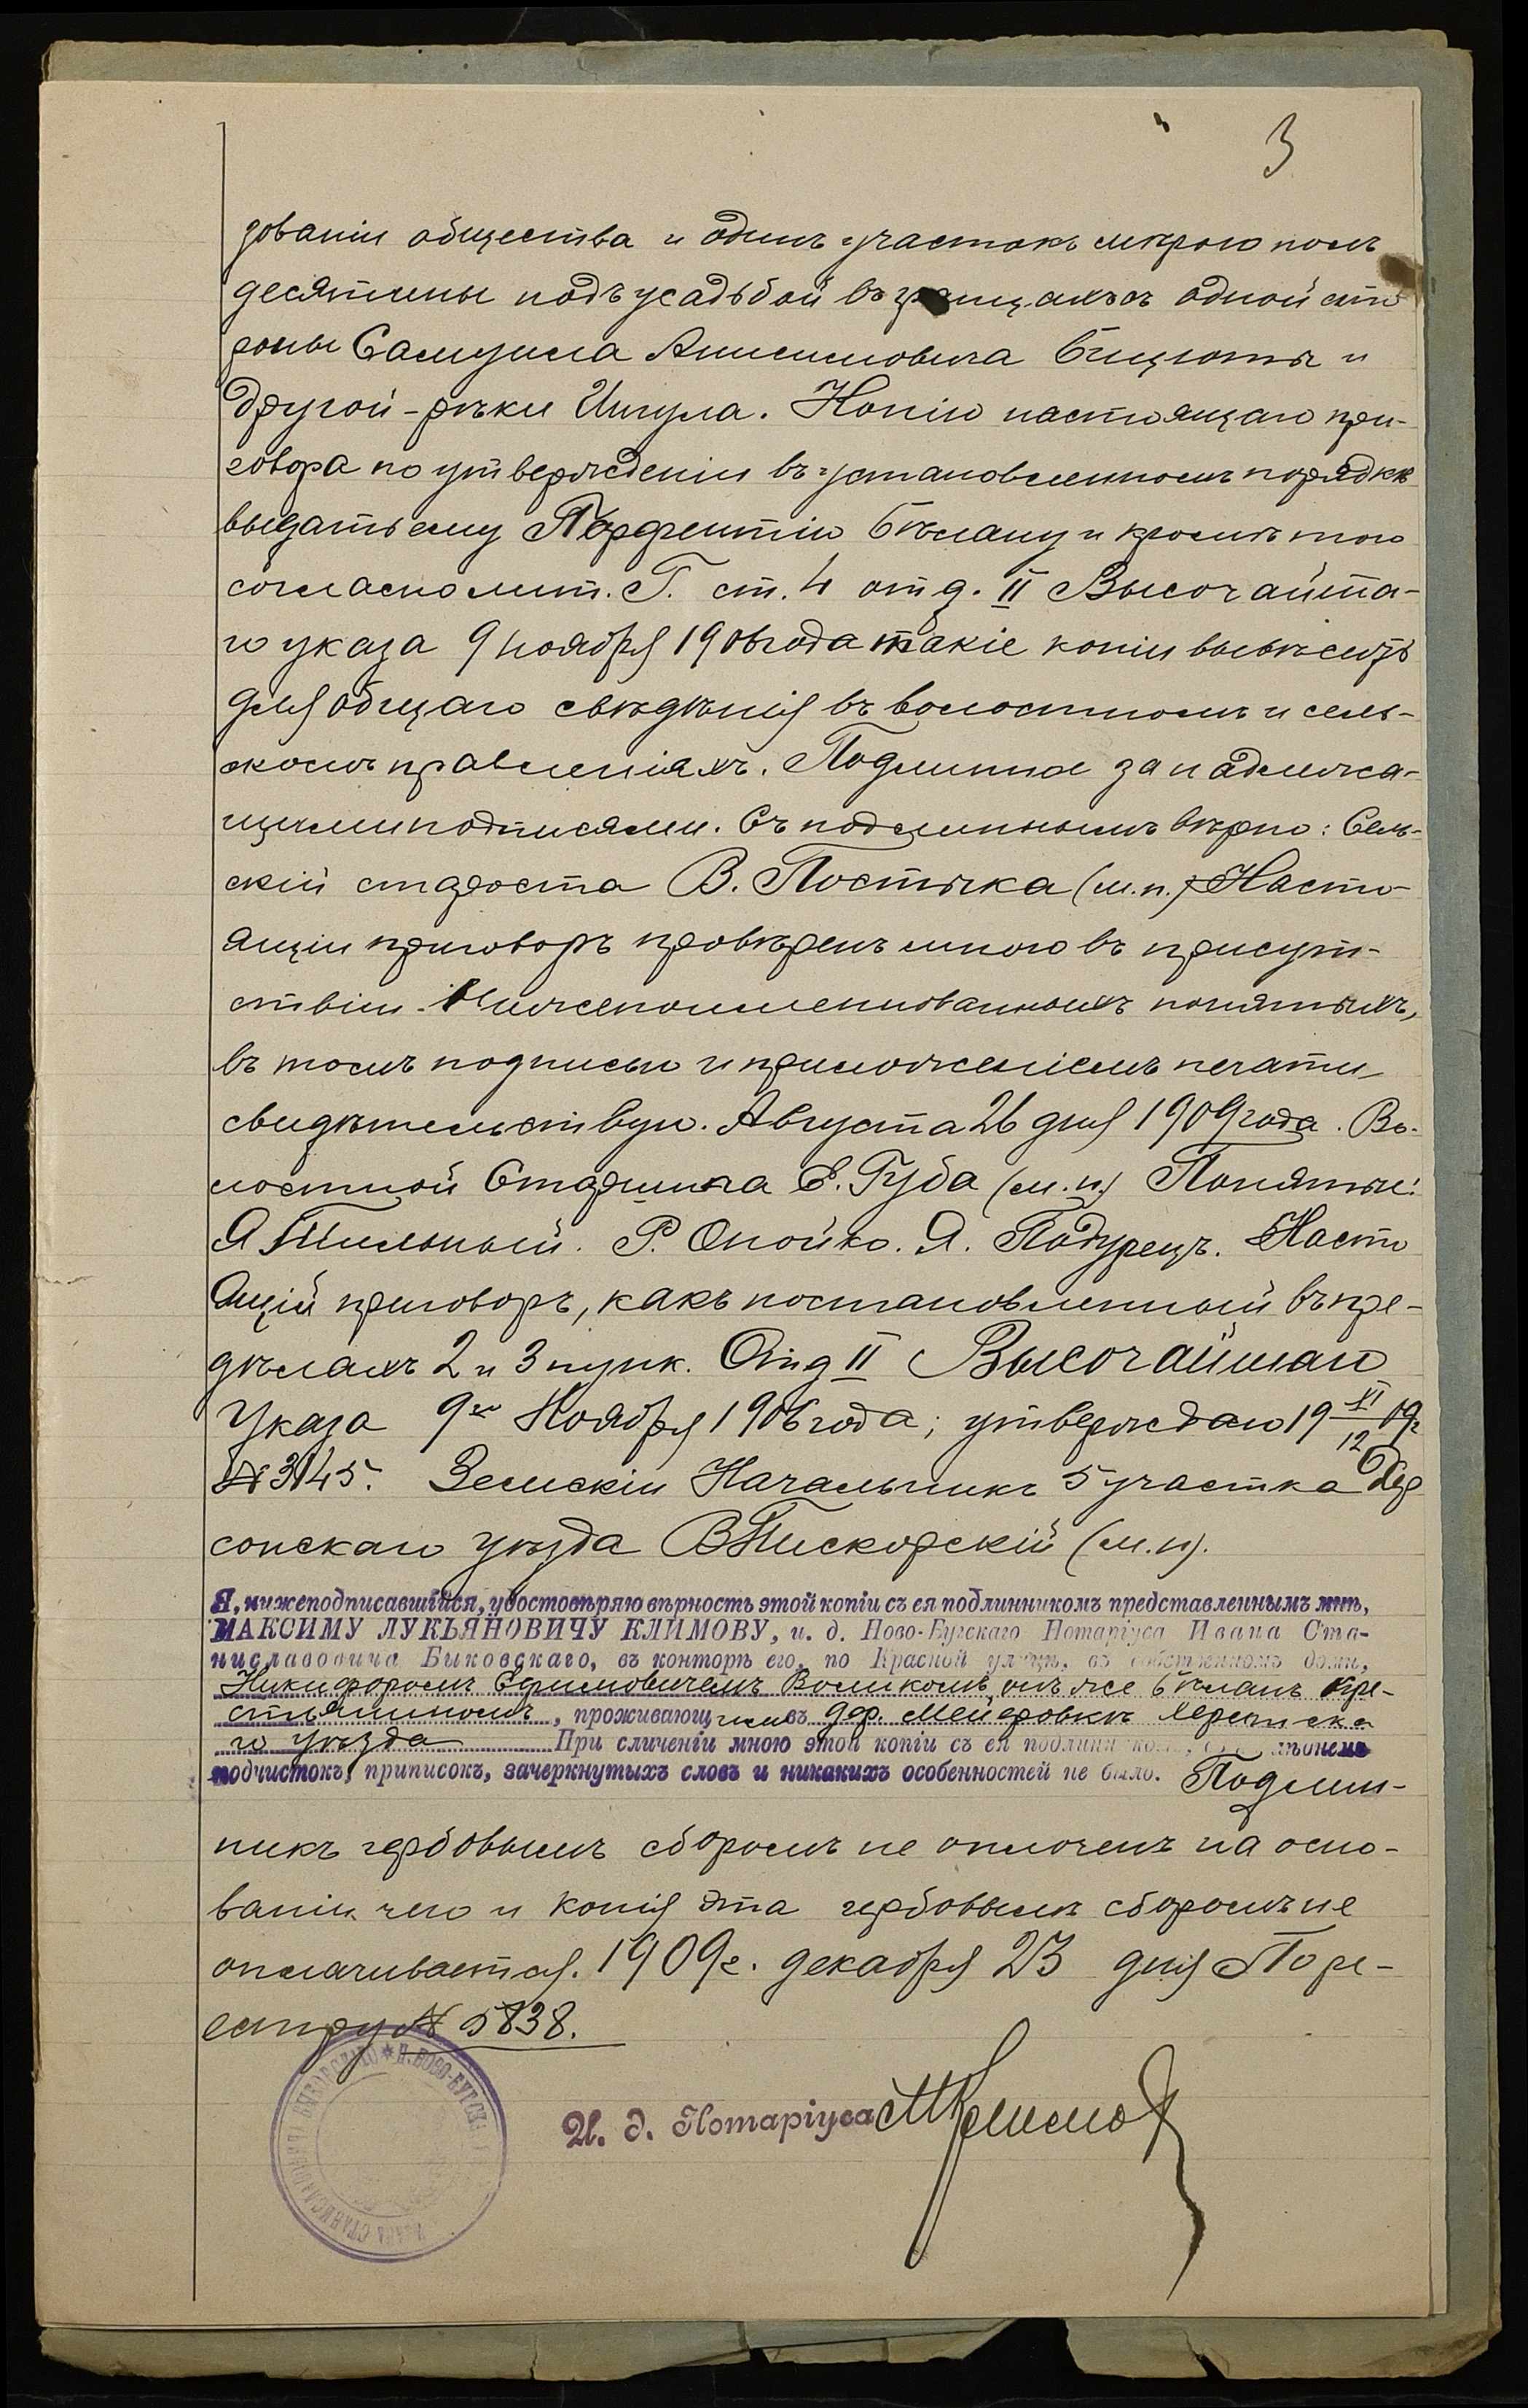 3
зованіи общества и одинъ участокъ мѣрою полъ
десятины подъ усадьбой въ границахъ съ одной сто
роны Самуила Анисимовича Бицюты и
другой - рѣки Ингула. Копію настоящаго при-
говора по утвержденіи въ установленномъ порядкѣ
выдать ему Парфентію Бѣлану и кромѣ того
согласно лит. Г. ст. 4 отд. II Высочайша-
го указа 9 ноября 1906 года такіе копіи вывѣсить
для общаго свѣдѣнія въ волостномъ и сель-
скомъ правленіяхъ. Подлинное за надлежа-
щими подписями. Съ подлиннымъ вѣрно: Сель-
скій староста В. Постыка (м.п.) Насто-
ящій приговоръ провѣренъ мною въ присут-
ствіи нижепоименованныхъ понятыхъ,
въ томъ подписью и приложеніемъ печати
свидѣтельствую. Августа 26 дня 1909 года. Во-
лостной Старшина Е. Губа (м.п.) Понятые:
Я Пильный. Р. Опойко. Я. Подурецъ. Насто
ящій приговоръ, какъ постановленный въ пре-
дѣлахъ 2 и 3 пунк. Отд II Высочайшаго
Указа 9го Ноября 1906 года; утверждаю 19 XI/12 09г
№ 3145. Земскій Начальникъ 5 участка Хер
сонскаго уѣзда В Пискорскій (м.п).
Я, нижеподписавшійся, удостовѣряю вѣрность этой копіи съ ея подлинникомъ представленнымъ мнѣ,
МАКСИМУ ЛУКЬЯНОВИЧУ КЛИМОВУ, и. д. Ново-Бугскаго Нотаріуса Ивана Ста-
ниславовича Быковскаго, въ конторѣ его, по Красной улицѣ, въ собственномъ домѣ,
Никифоромъ Ефимовичемъ Воликомъ, онъ же Бѣланъ кре-
стьяниномъ, проживающимъ въ дер. Мейеровкѣ Херсонска
го уѣзда При сличеніи мною этой копіи съ ея подлинникомъ, въ послѣднемъ
подчистокъ, приписокъ, зачеркнутыхъ словъ и никакихъ особенностей не было. Подлин-
никъ гербовымъ сборомъ не оплоченъ на осно-
ваніи чего и копія эта гербовымъ сборомъ не
оплачивается. 1909 г. декабря 23 дня По ре-
естру № 5838.
И. д. Нотаріуса МКлимов